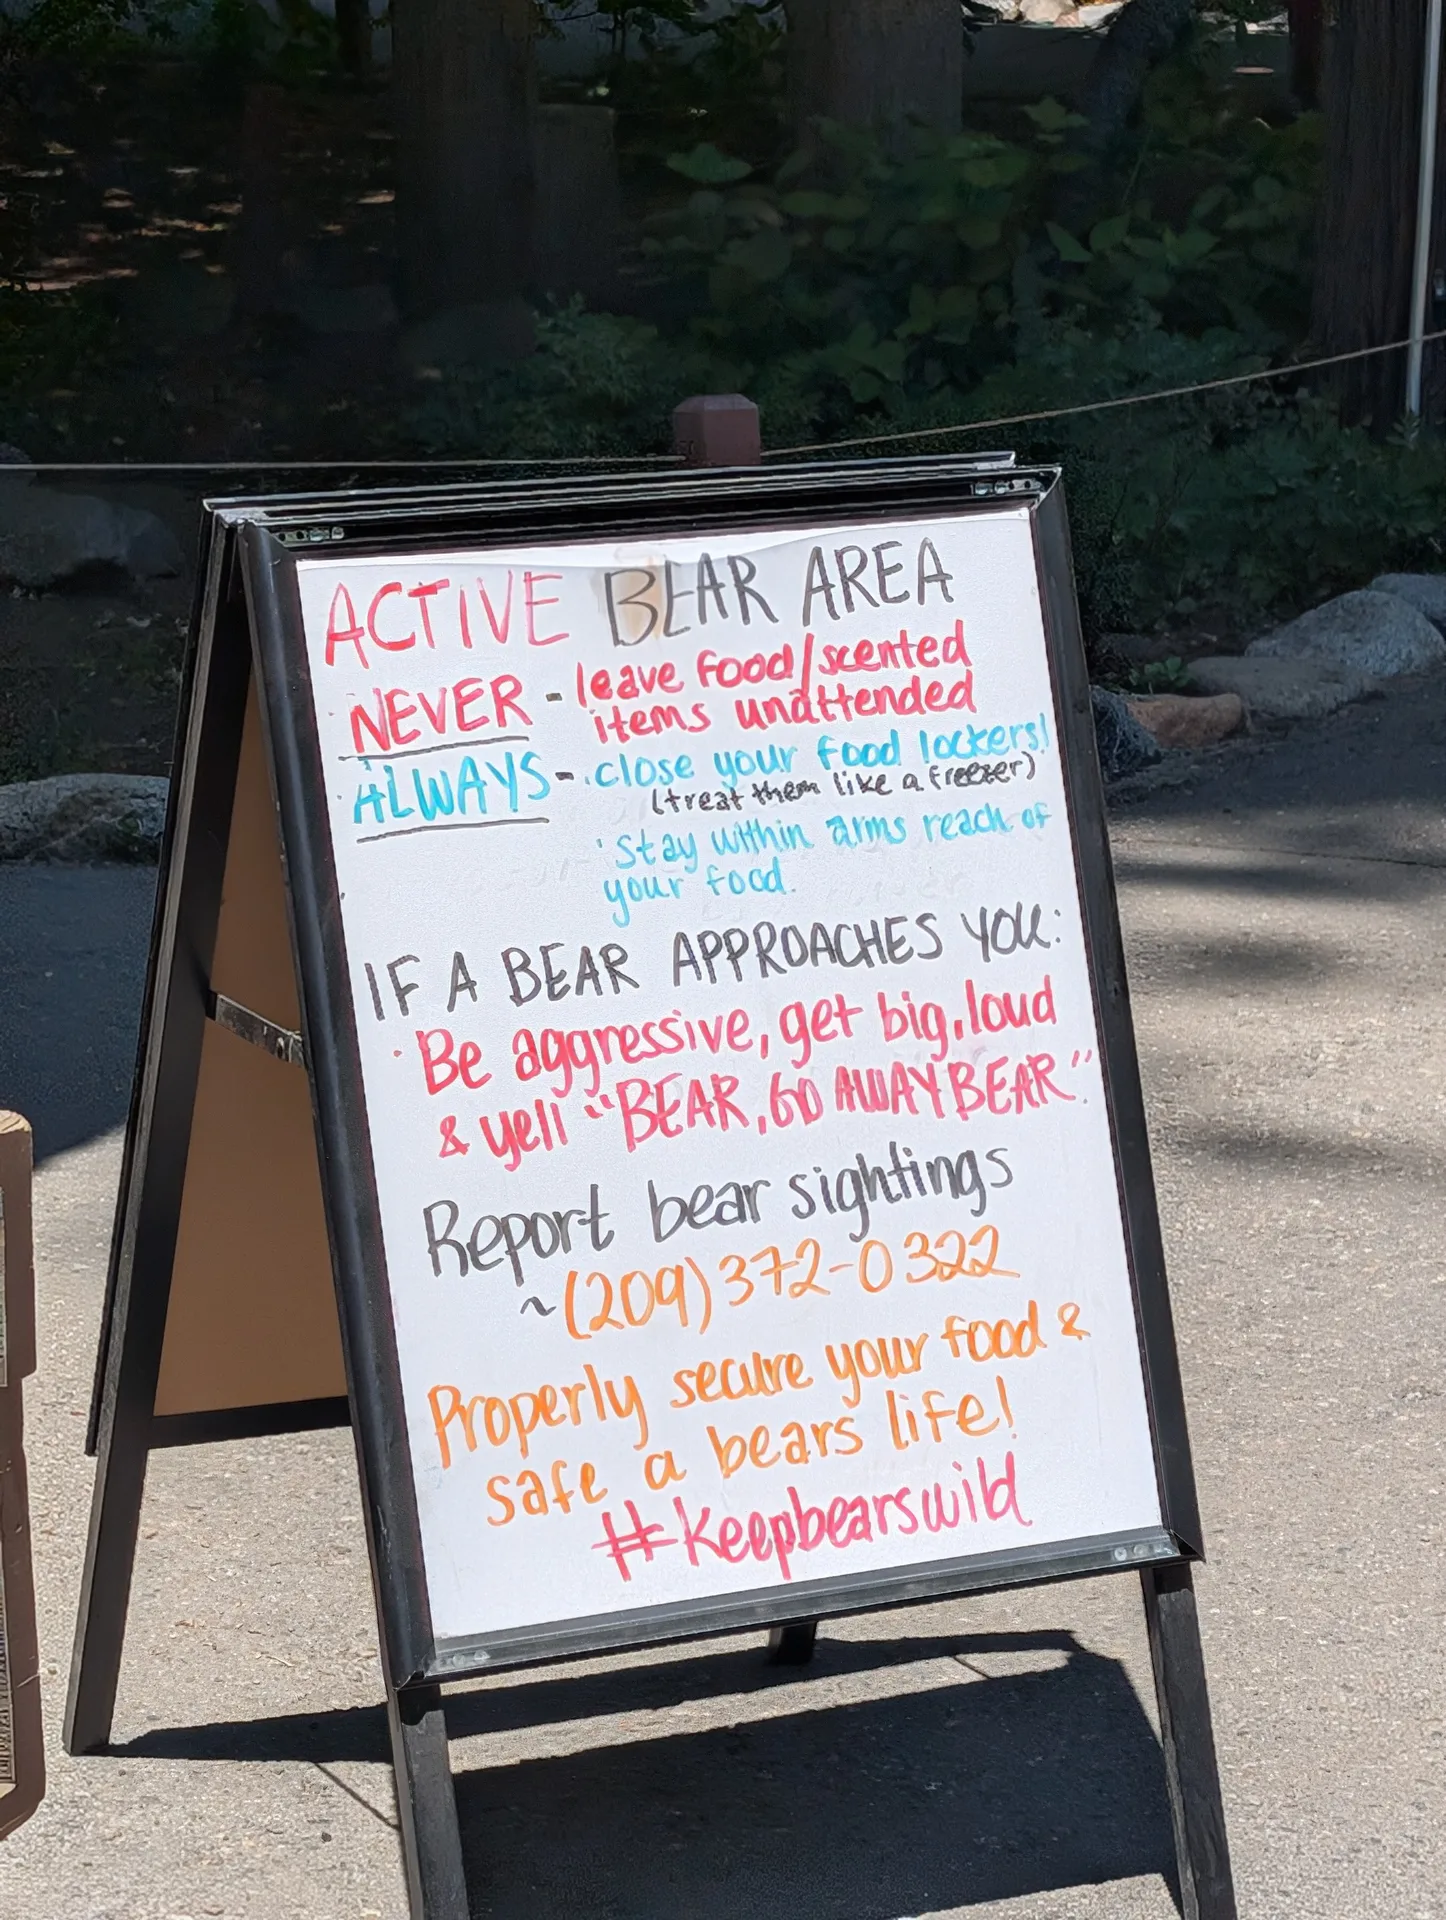 ACTIVE BEAR AREA
NEVER - leave food/scented
items unattended
ALWAYS - · close your food lockers!
(treat them like a freezer)
· stay within arms reach of
your food.
IF A BEAR APPROACHES YOU:
· Be aggressive, get big, loud
& yell "BEAR, GO AWAY BEAR."
Report bear sightings
~(209)372-0322
Properly secure your food &
safe a bears life!
#Keepbearswild